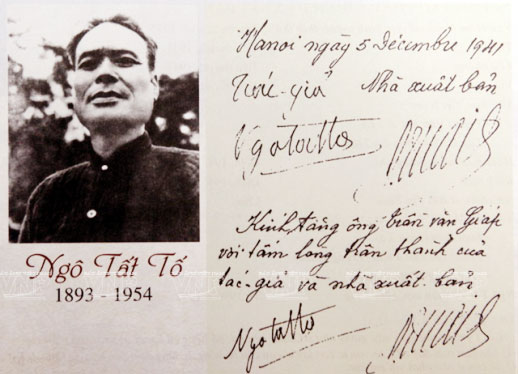 Ngô Tất Tố
1893 - 1954
Hanoi ngày 5 Décembre 1941
Tác-giả Nhà xuất bản
Ngôtatto
Kính tặng ông trần văn Giáp
với tấm lòng trân thành của
tác-giả và nhà xuất bản
Ngotatto